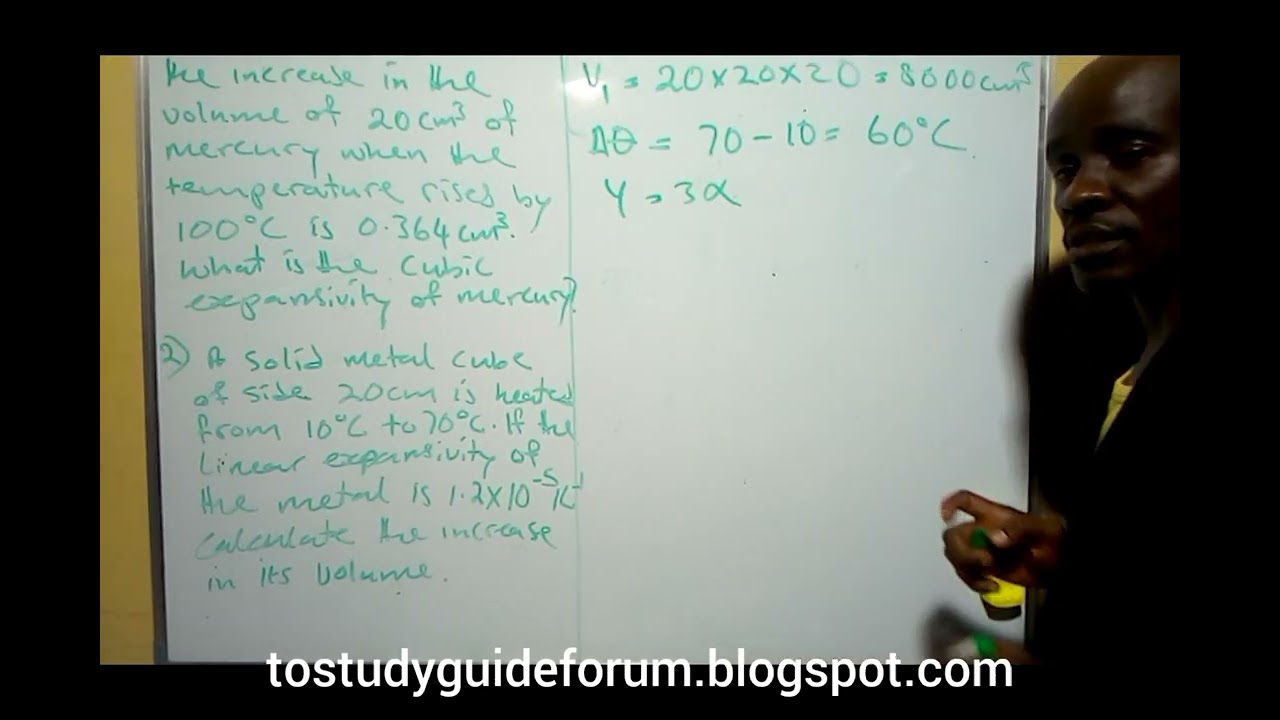 the increase in the
volume of 20cm³ of
mercury when the
temperature rises by
100°C is 0.364cm³.
What is the cubic
expansivity of mercury?
2) A solid metal cube
of side 20cm is heated
from 10°C to 70°C. If the
Linear expansivity of
the metal is 1.2x10⁻⁵K⁻¹
calculate the increase
in its volume.
V₁ = 20x20x20 = 8000cm³
Δθ = 70-10= 60°C
γ = 3α
tostudyguideforum.blogspot.com